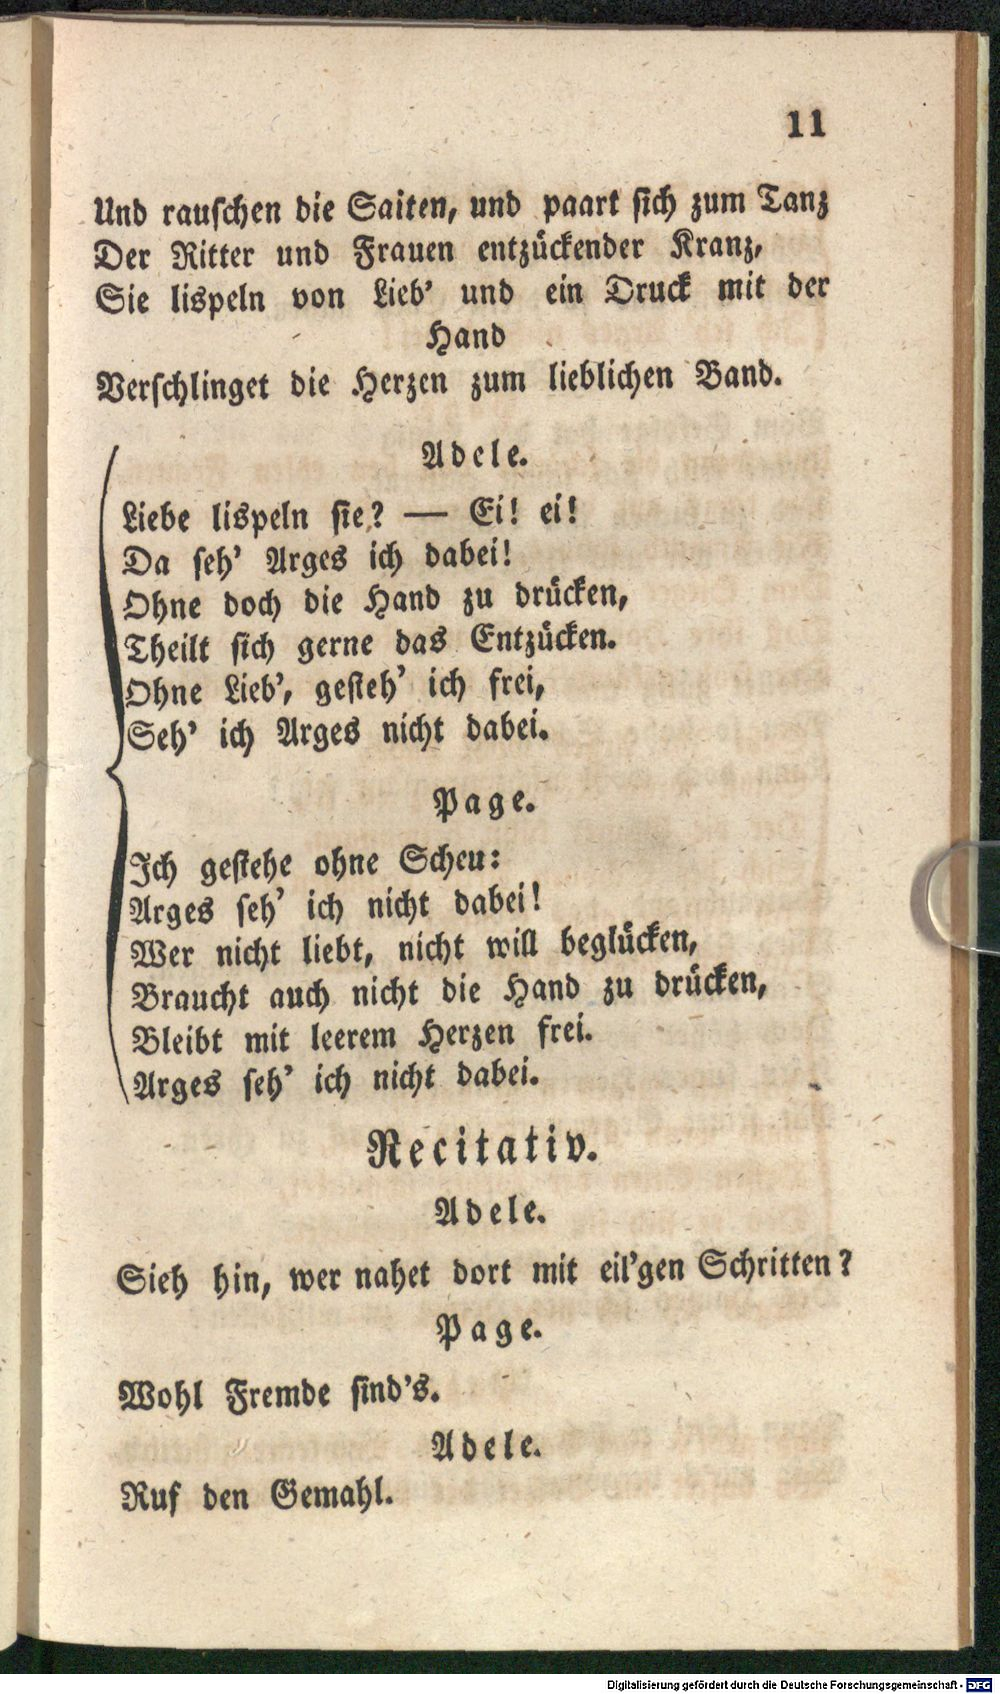 11
Und rauschen die Saiten, und paart sich zum Tanz
Der Ritter und Frauen entzückender Kranz,
Sie lispeln von Lieb' und ein Druck mit der
Hand
Verschlinget die Herzen zum lieblichen Band.
Adele.
Liebe lispeln sie? — Ei! ei!
Da seh' Arges ich dabei!
Ohne doch die Hand zu drücken,
Theilt sich gerne das Entzücken.
Ohne Lieb', gesteh' ich frei,
Seh' ich Arges nicht dabei.
Page.
Ich gestehe ohne Scheu:
Arges seh' ich nicht dabei!
Wer nicht liebt, nicht will beglücken,
Braucht auch nicht die Hand zu drücken,
Bleibt mit leerem Herzen frei.
Arges seh' ich nicht dabei.
Recitativ.
Adele.
Sieh hin, wer nahet dort mit eil'gen Schritten?
Page.
Wohl Fremde sind's.
Adele.
Ruf den Gemahl.
Digitalisierung gefördert durch die Deutsche Forschungsgemeinschaft - DFG